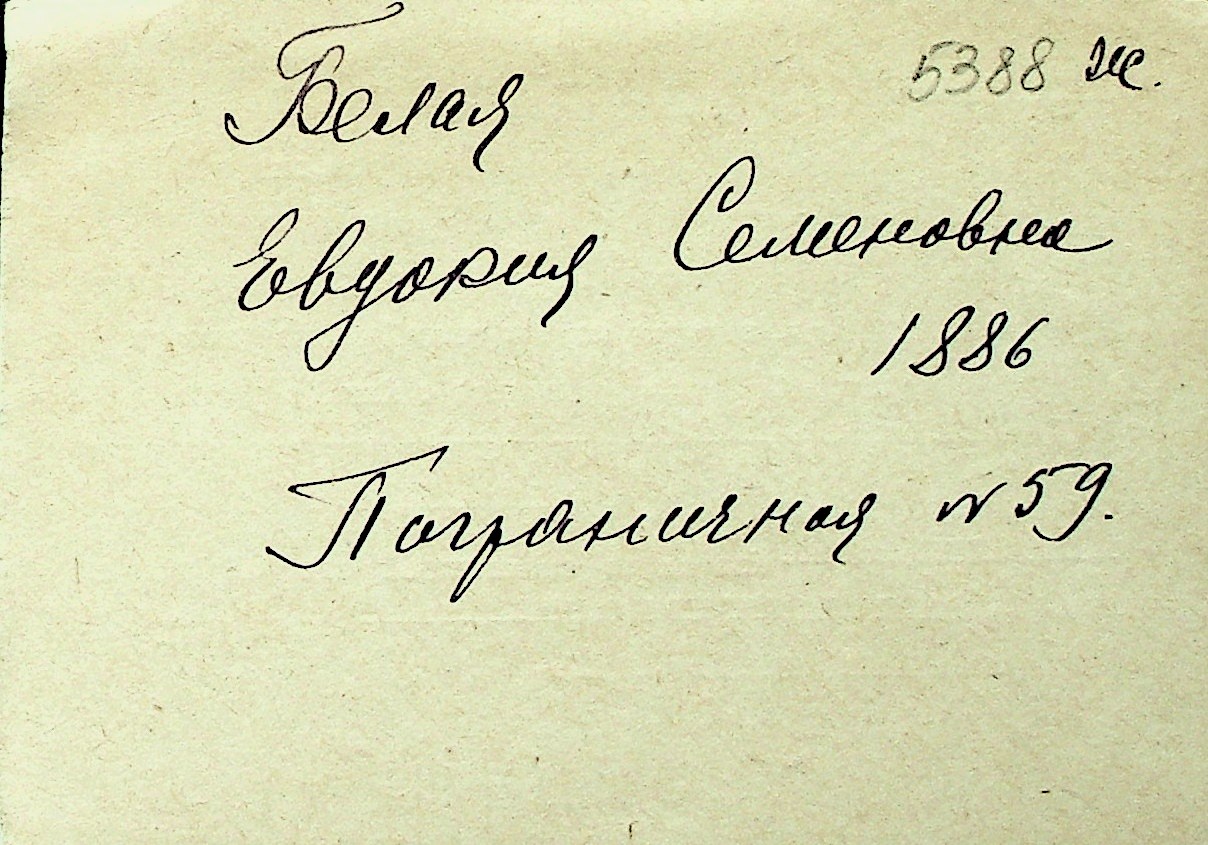 Белая 5388 Ж.
Евдокия Семеновна
1886
Пограничная № 59.